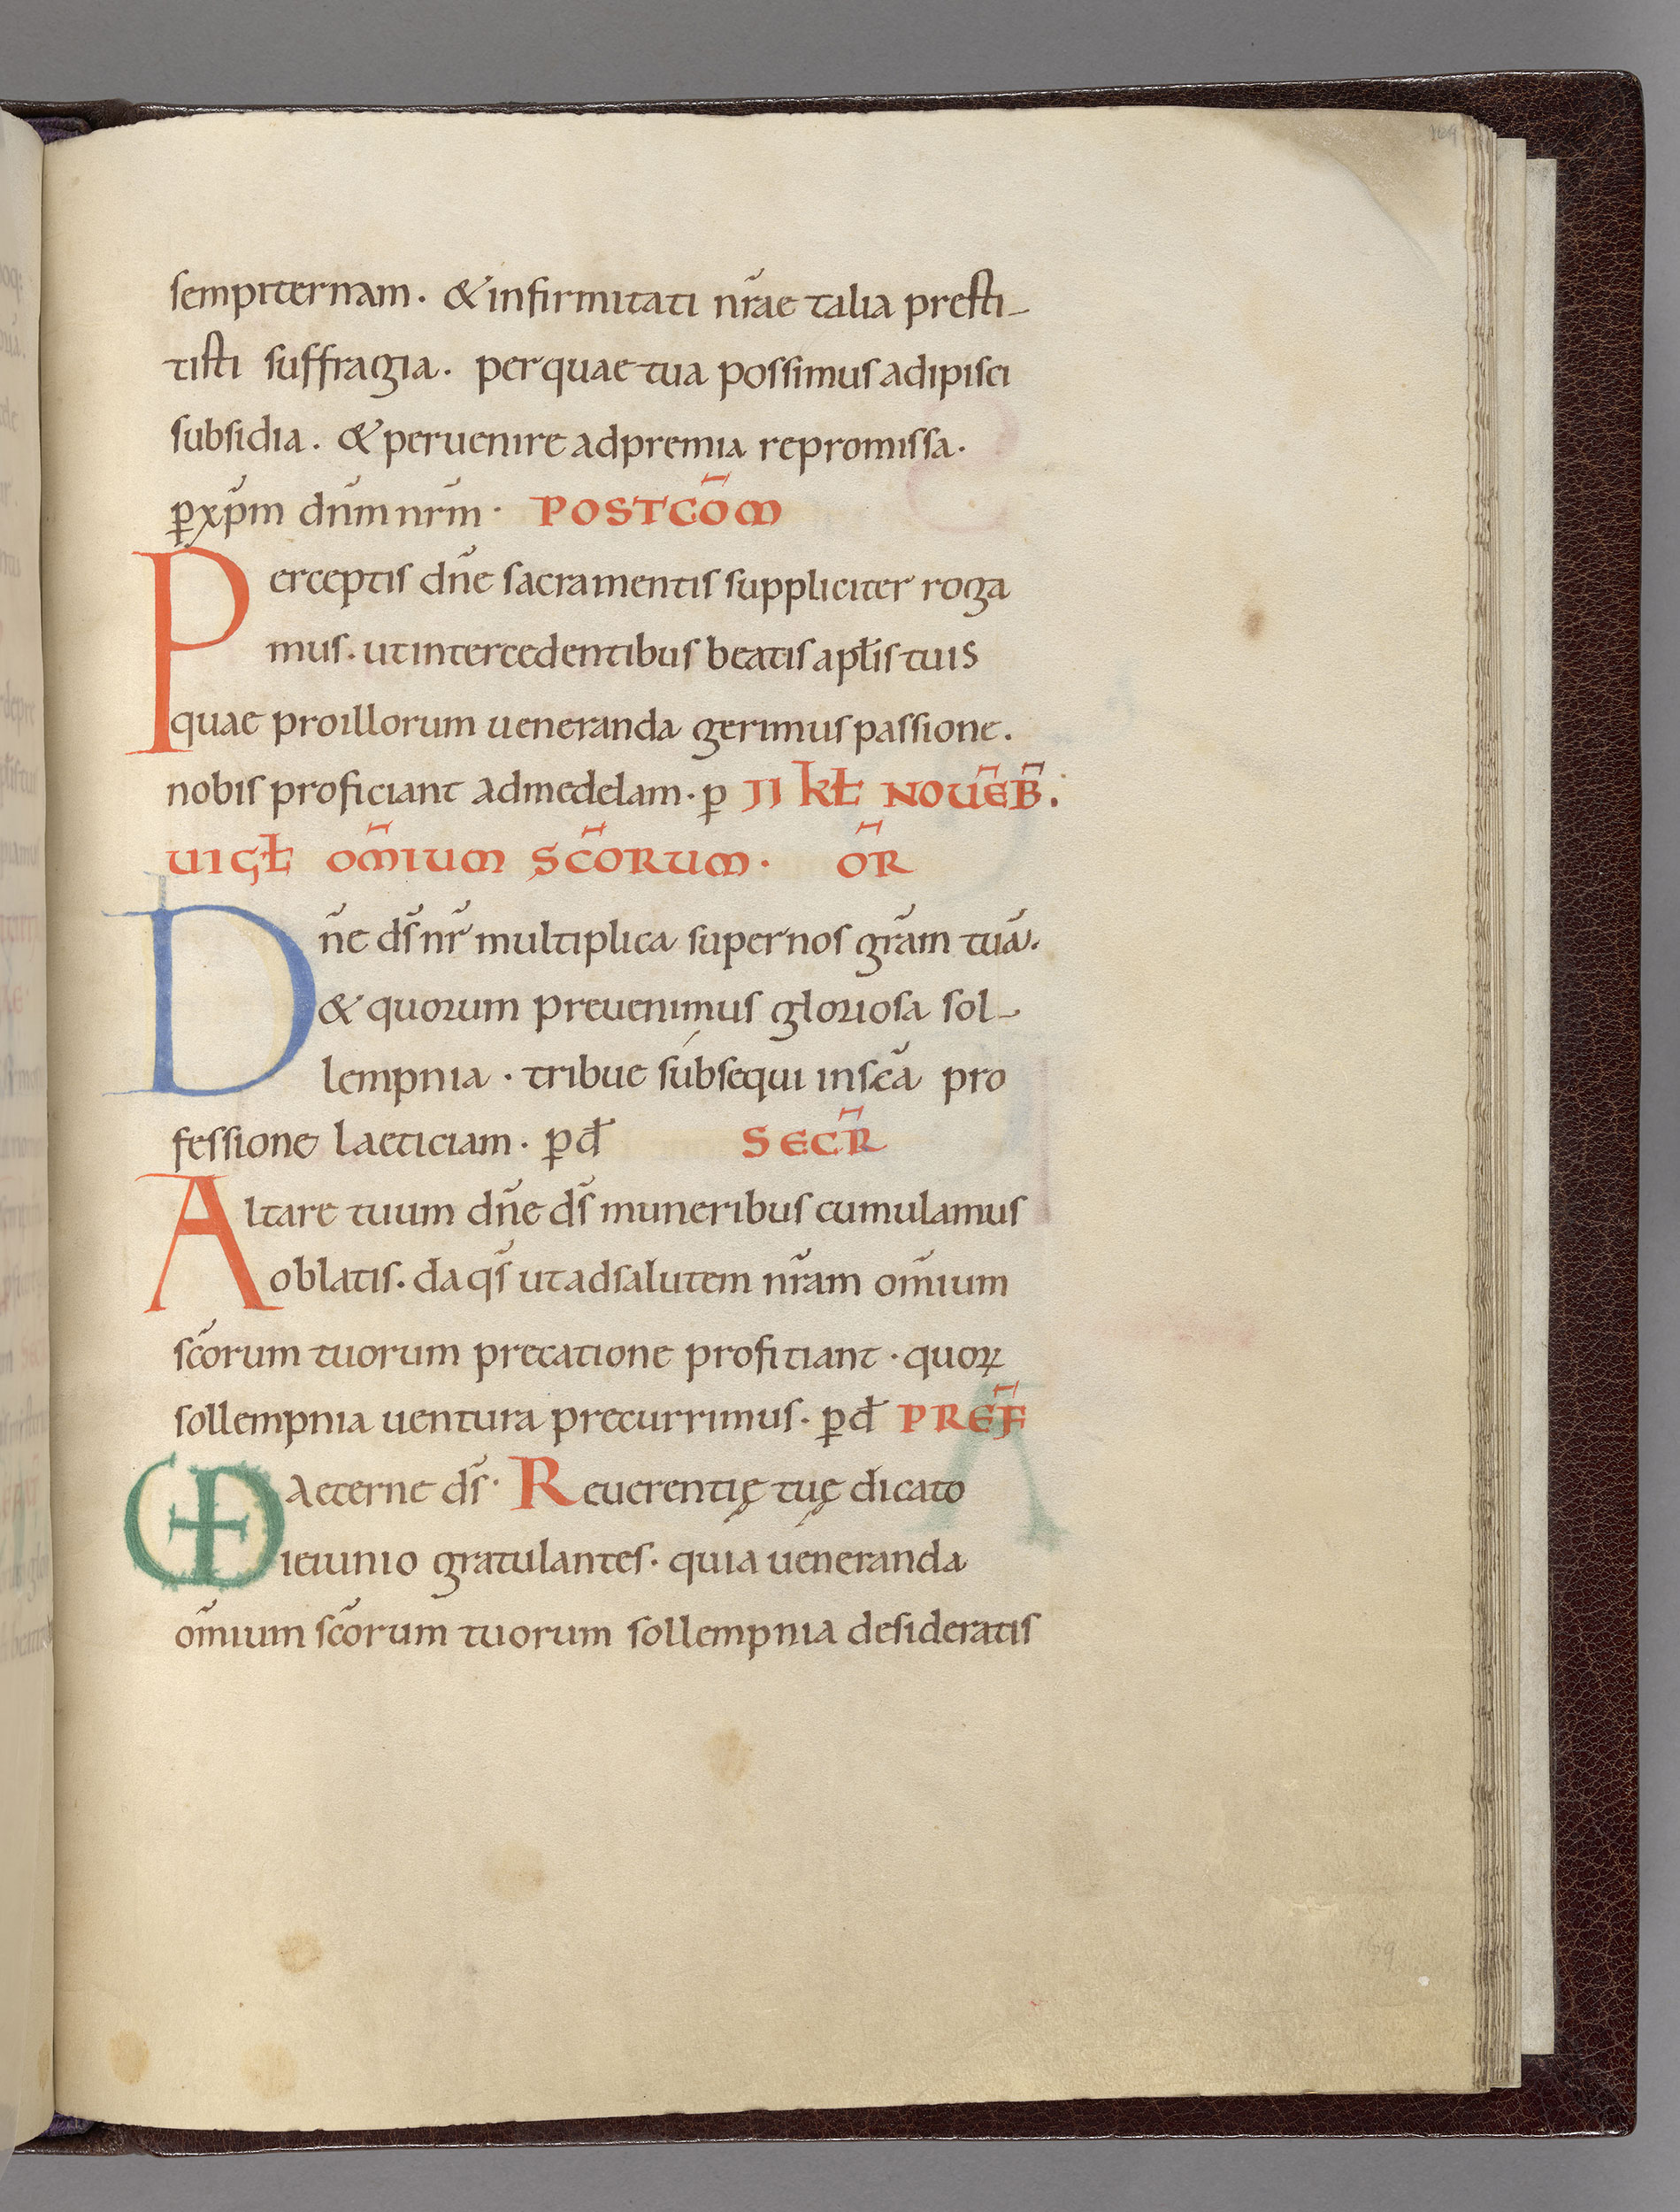 169
sempiternam. & infirmitati nr̃ae talia presti-
tisti suffragia. per quae tua possimus adipisci
subsidia. & peruenire ad premia repromissa.
ꝑ xp̃m dñm nrm̃. POSTCOM̃
Perceptis dñe sacramentis suppliciter roga
mus. ut intercedentibus beatis apłis tuis
quae pro illorum ueneranda gerimus passione.
nobis proficiant ad medelam. ꝑ II kł NOUẼB̃.
UIGł OM̃IUM SC̃ORUM. OR̃
Dñe ds̃ nr̃ multiplica super nos gr̃am tuã.
& quorum preuenimus gloriosa sol-
lempnia. tribue subsequi in sc̃a pro
fessione laeticiam. ꝑ đ SECR̃
Altare tuum dñe ds̃ muneribus cumulamus
oblatis. da qs̃ ut ad salutem nr̃am om̃ium
sc̃orum tuorum precatione profitiant. quoꝝ
sollempnia uentura precurrimus. ꝑ đ PREF̃
UD aeterne ds̃. Reuerentię tuę dicato
ieiunio gratulantes. quia ueneranda
om̃ium sc̃orum tuorum sollempnia desideratis
169